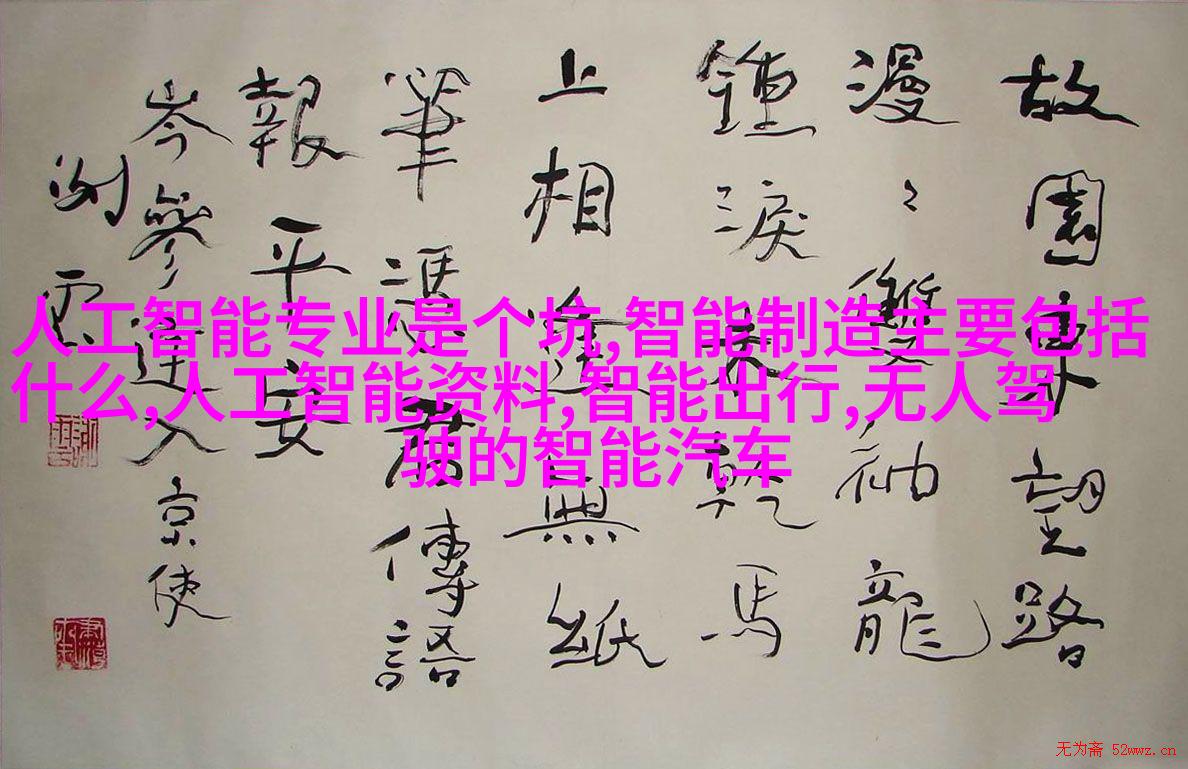 故園東望路
漫々雙袖龍
鍾淚未乾馬
上相逢無紙
筆憑君傳語
報平安
岑參逢入京使
人工智能专业是个坑,智能制造主要包括
什么,人工智能资料,智能出行,无人驾
驶的智能汽车
无为斋 52wwz.cn